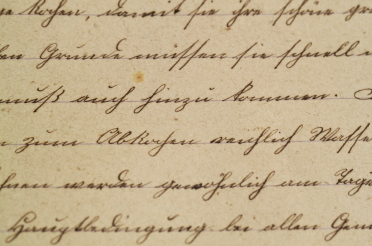 ne kochen, damit sie ihre schöne gr
len Grunde müssen sie schnell
muß auch hinzu kommen.
n zum Abkochen reichlich Wasse
hnen werden gewöhnlich am Tage
Hauptbedingung bei allen Gem